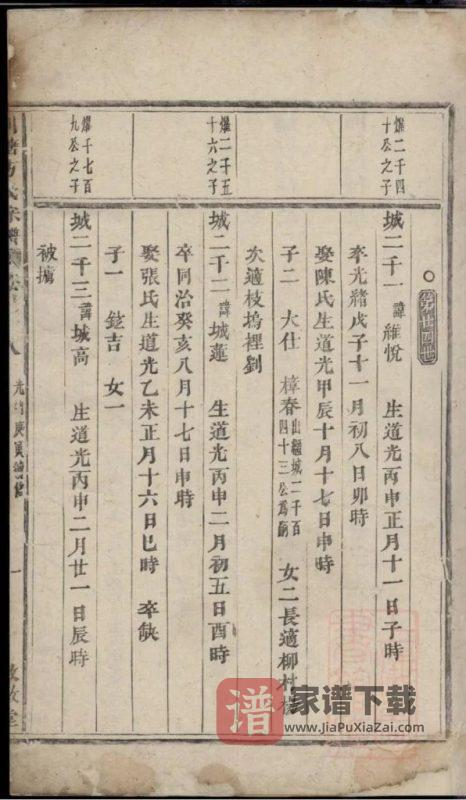 第廿四世
爗二千四
十公之子
城二千一 諱維悅 生道光丙申正月十一日子時
卒光緒戊子十一月初八日卯時
娶陳氏生道光甲辰十月十七日申時
子二 大仕 樟春出繼城二千百四十三公為嗣 女二長適柳村
次適枝塢裡劉
爗二千五
十六公之子
城二千二 諱城蓮 生道光丙申二月初五日酉時
卒同治癸亥八月十七日申時
娶張氏生道光乙未正月十六日巳時 卒缺
子一 錠吉 女一
爗千七百
九公之子
城二千三 諱城高 生道光丙申二月廿一日辰時
被擄
方氏宗譜
八
光緒庚寅
一
堂
谱 家谱下载
www.JiaPuXiaZai.com